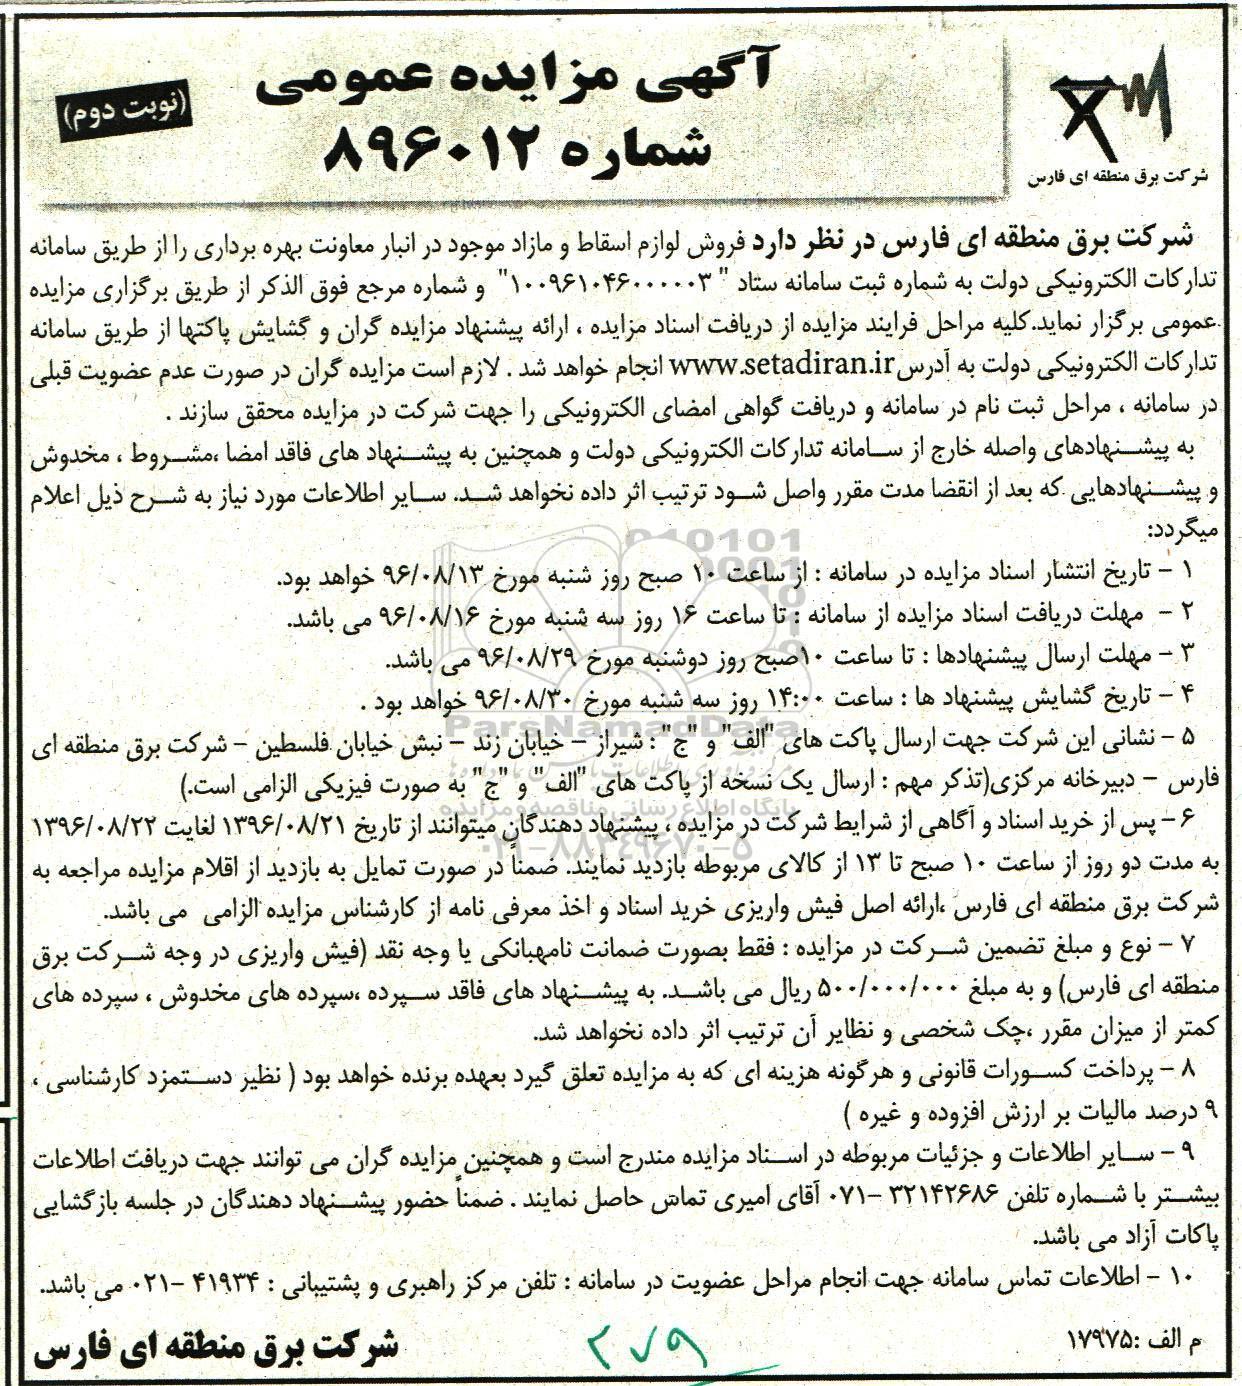 آگهی مزایده عمومی
شماره ۸۹۶۰۱۲
(نوبت دوم)
شرکت برق منطقه ای فارس
شرکت برق منطقه ای فارس در نظر دارد فروش لوازم اسقاط و مازاد موجود در انبار معاونت بهره برداری را از طریق سامانه
تدارکات الکترونیکی دولت به شماره ثبت سامانه ستاد " ۱۰۰۹۶۱۰۴۶۰۰۰۰۰۳" و شماره مرجع فوق الذکر از طریق برگزاری مزایده
عمومی برگزار نماید.کلیه مراحل فرایند مزایده از دریافت اسناد مزایده ، ارائه پیشنهاد مزایده گران و گشایش پاکتها از طریق سامانه
تدارکات الکترونیکی دولت به آدرس www.setadiran.ir انجام خواهد شد . لازم است مزایده گران در صورت عدم عضویت قبلی
در سامانه ، مراحل ثبت نام در سامانه و دریافت گواهی امضای الکترونیکی را جهت شرکت در مزایده محقق سازند .
به پیشنهادهای واصله خارج از سامانه تدارکات الکترونیکی دولت و همچنین به پیشنهاد های فاقد امضا ،مشروط ، مخدوش
و پیشنهادهایی که بعد از انقضا مدت مقرر واصل شود ترتیب اثر داده نخواهد شد. سایر اطلاعات مورد نیاز به شرح ذیل اعلام
میگردد:
۱ - تاریخ انتشار اسناد مزایده در سامانه : از ساعت ۱۰ صبح روز شنبه مورخ ۹۶/۰۸/۱۳ خواهد بود.
۲ - مهلت دریافت اسناد مزایده از سامانه : تا ساعت ۱۶ روز سه شنبه مورخ ۹۶/۰۸/۱۶ می باشد.
۳ - مهلت ارسال پیشنهادها : تا ساعت ۱۰صبح روز دوشنبه مورخ ۹۶/۰۸/۲۹ می باشد.
۴ - تاریخ گشایش پیشنهاد ها : ساعت ۱۴:۰۰ روز سه شنبه مورخ ۹۶/۰۸/۳۰ خواهد بود .
۵ - نشانی این شرکت جهت ارسال پاکت های "الف" و "ج" : شیراز - خیابان زند - نبش خیابان فلسطین - شرکت برق منطقه ای
فارس - دبیرخانه مرکزی(تذکر مهم : ارسال یک نسخه از پاکت های "الف" و "ج" به صورت فیزیکی الزامی است.)
۶ - پس از خرید اسناد و آگاهی از شرایط شرکت در مزایده ، پیشنهاد دهندگان میتوانند از تاریخ ۱۳۹۶/۰۸/۲۱ لغایت ۱۳۹۶/۰۸/۲۲
به مدت دو روز از ساعت ۱۰ صبح تا ۱۳ از کالای مربوطه بازدید نمایند. ضمناً در صورت تمایل به بازدید از اقلام مزایده مراجعه به
شرکت برق منطقه ای فارس ،ارائه اصل فیش واریزی خرید اسناد و اخذ معرفی نامه از کارشناس مزایده الزامی می باشد.
۷ - نوع و مبلغ تضمین شرکت در مزایده : فقط بصورت ضمانت نامهبانکی یا وجه نقد (فیش واریزی در وجه شرکت برق
منطقه ای فارس) و به مبلغ ۵۰۰/۰۰۰/۰۰۰ ریال می باشد. به پیشنهاد های فاقد سپرده ،سپرده های مخدوش ، سپرده های
کمتر از میزان مقرر ،چک شخصی و نظایر آن ترتیب اثر داده نخواهد شد.
۸ - پرداخت کسورات قانونی و هرگونه هزینه ای که به مزایده تعلق گیرد بعهده برنده خواهد بود ( نظیر دستمزد کارشناسی ،
۹ درصد مالیات بر ارزش افزوده و غیره )
۹ - سایر اطلاعات و جزئیات مربوطه در اسناد مزایده مندرج است و همچنین مزایده گران می توانند جهت دریافت اطلاعات
بیشتر با شماره تلفن ۳۲۱۴۲۶۸۶ -۰۷۱ آقای امیری تماس حاصل نمایند . ضمناً حضور پیشنهاد دهندگان در جلسه بازگشایی
پاکات آزاد می باشد.
۱۰ - اطلاعات تماس سامانه جهت انجام مراحل عضویت در سامانه : تلفن مرکز راهبری و پشتیبانی : ۴۱۹۳۴ -۰۲۱ می باشد.
م الف :۱۷۹۷۵
۲۷۹
شرکت برق منطقه ای فارس
ParsNamadData
پایگاه اطلاع رسانی مناقصه و مزایده
۰۲۱-۸۸۳۴۹۶۷۰-۵